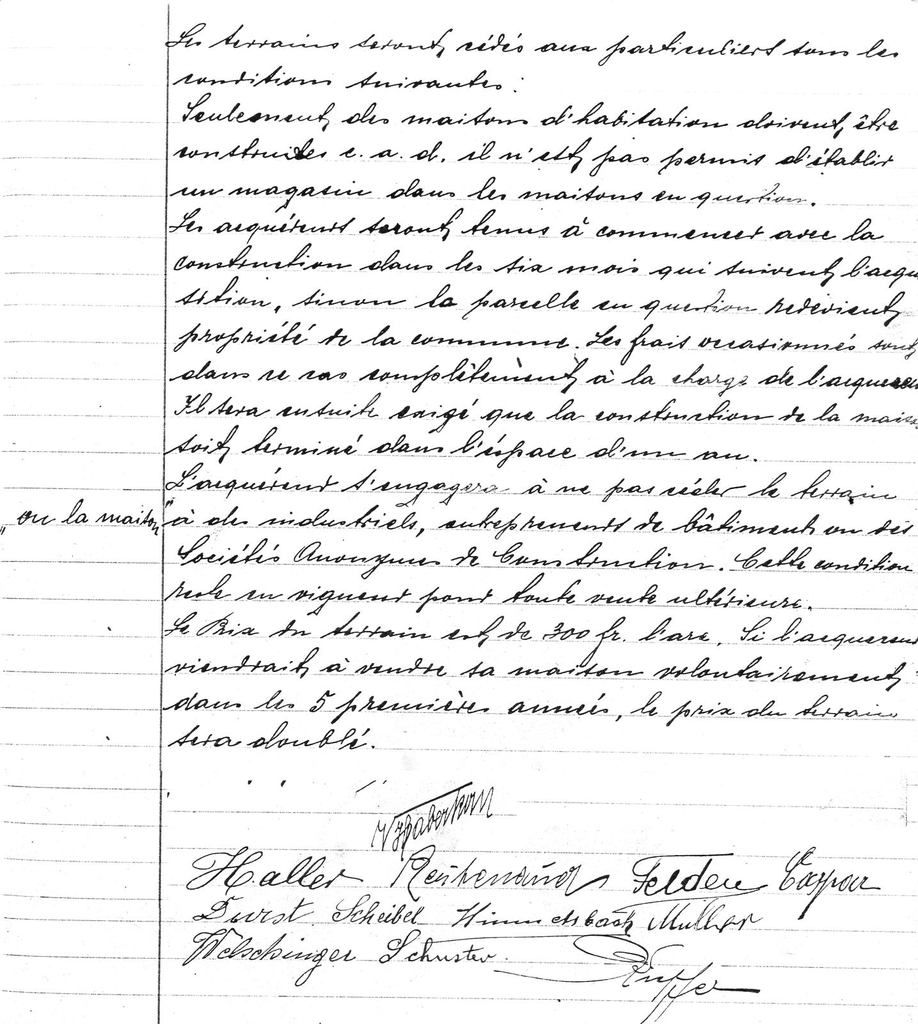 Les terrains seront cédés aux particuliers sous les
conditions suivantes :
Seulement des maisons d'habitation doivent être
construites c. a. d. il n'est pas permis d'établir
un magasin dans les maisons en question.
Les acquéreurs seront tenus à commencer avec la
construction dans les six mois qui suivent l'acqui
sition, sinon la parcelle en question redevient
propriété de la commune. Les frais occasionnés sont
dans ce cas complètement à la charge de l'acquereur
Il sera ensuite exigé que la construction de la maison
soit terminé dans l'éspace d'un an.
L'acquéreur s'engagera à ne pas céder le terrain
"ou la maison" à des industriels, entrepreneurs de bâtiment ou des
Sociétés Anonymes de Construction. Cette condition
reste en vigueur pour toute vente ultérieure.
Le Prix du terrain est de 300 fr. l'are. Si l'acquereur
viendrait à vendre sa maison volontairement
dans les 5 premières années, le prix du terrain
sera doublé.
Haberkorn
Haller Reutenauer Felden Caspar
Durst Scheibel Himmelsbach Muller
Welschinger Schuster